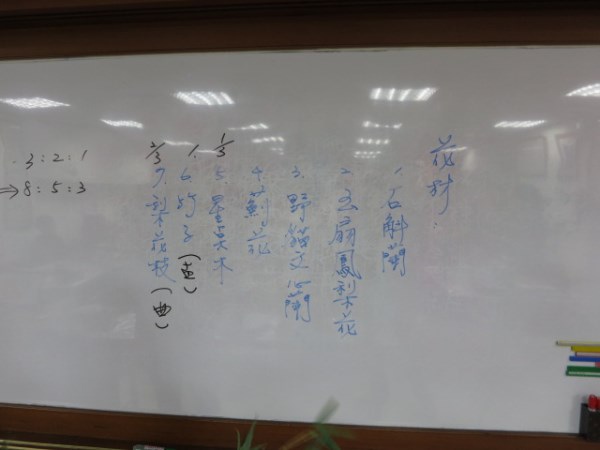 花材:
1. 石斛蘭
2. 扇鳳梨花
3. 野貓文心蘭
4. 薊花
1/3
5. 星點木
1
6. 竹子(直)
2/3
7. 梨花枝(曲)
3:2:1
⇒8:5:3